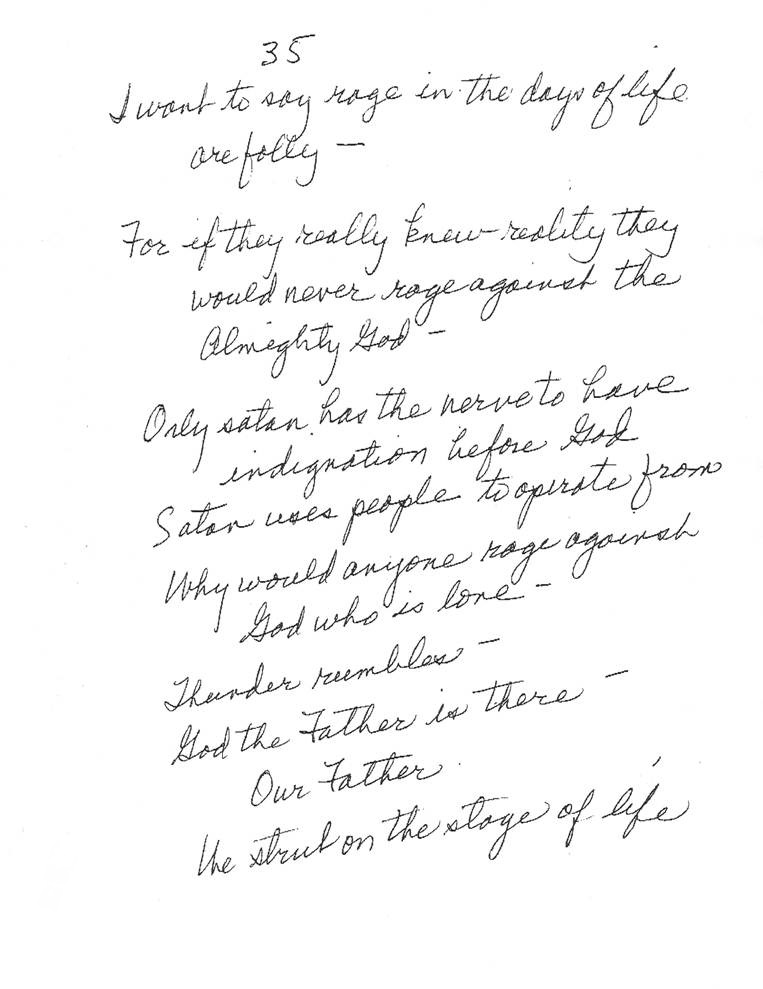 35
I want to say rage in the days of life
are folly —
For if they really knew reality they
would never rage against the
Almighty God —
Only satan has the nerve to have
indignation before God
Satan uses people to operate from
Why would anyone rage against
God who is love —
Thunder rumbles —
God the Father is there —
Our Father
We strut on the stage of life